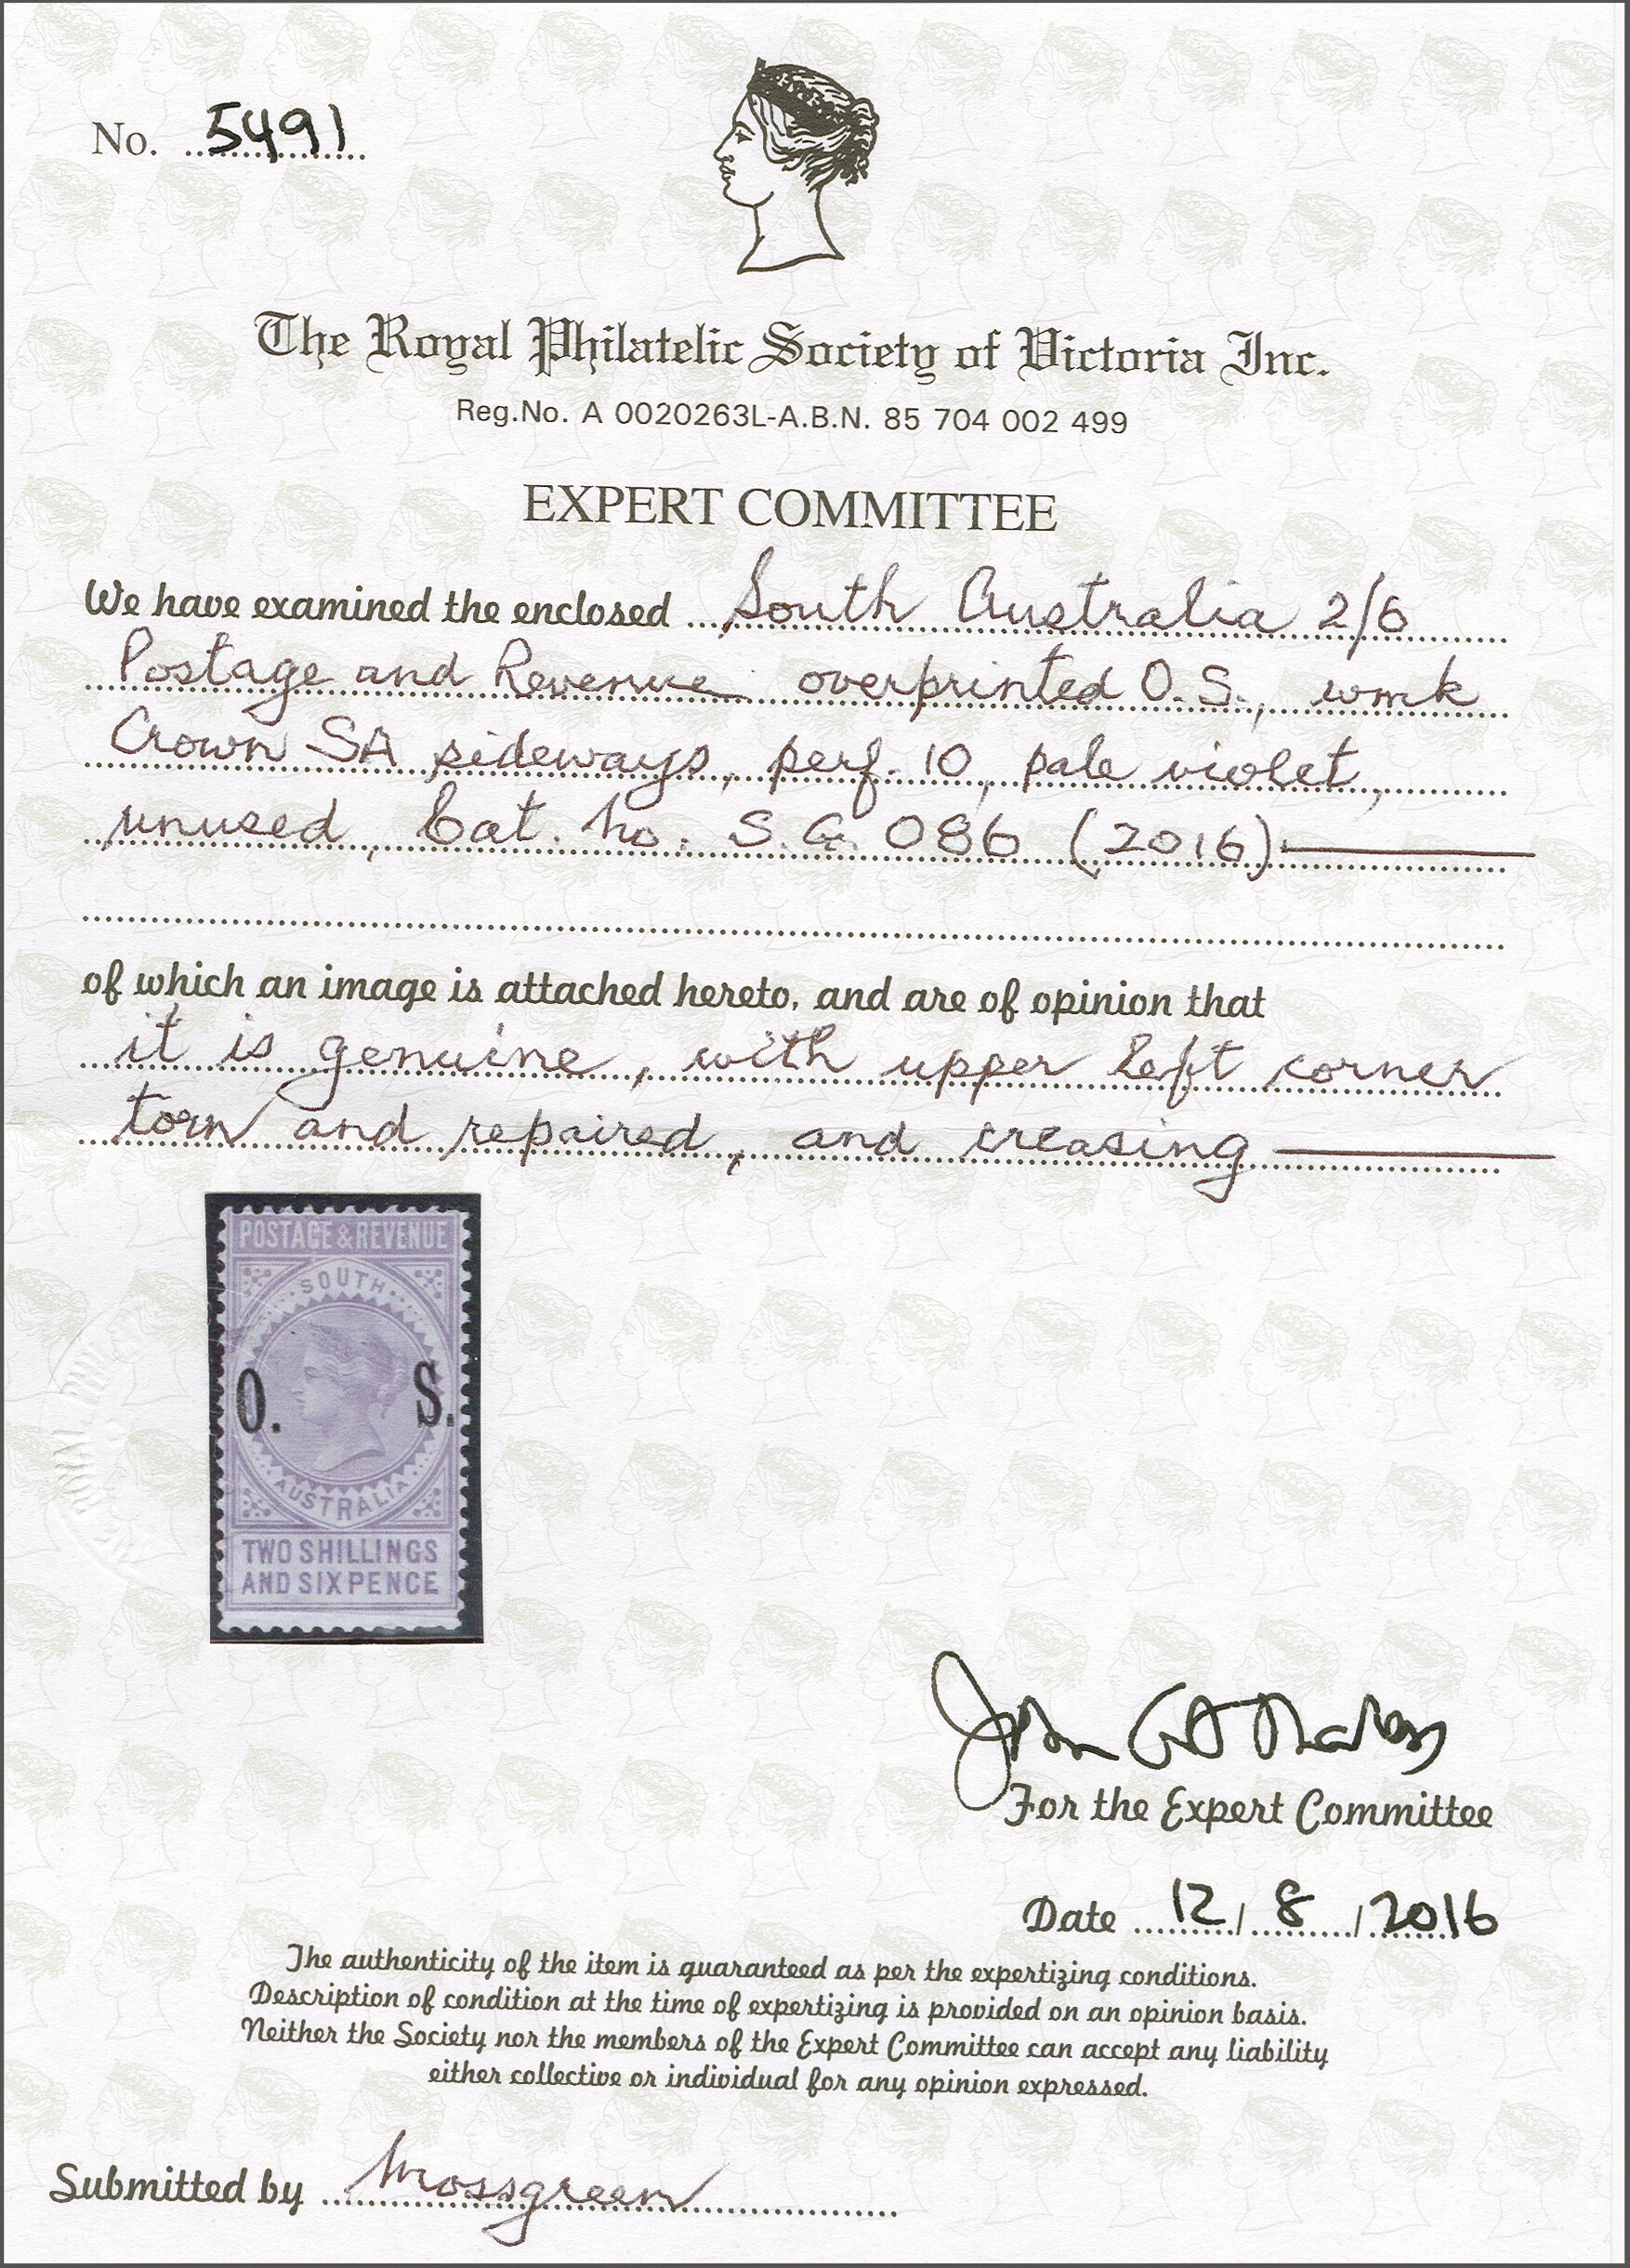 No. 5491
The Royal Philatelic Society of Victoria Inc.
Reg.No. A 0020263L-A.B.N. 85 704 002 499
EXPERT COMMITTEE
We have examined the enclosed South Australia 2/6
Postage and Revenue overprinted O.S., wmk
Crown SA sideways, perf. 10, pale violet,
unused, Cat. No. S.G. O86 (2016)
of which an image is attached hereto, and are of opinion that
it is genuine, with upper left corner
torn and repaired, and creasing
POSTAGE & REVENUE
SOUTH
O. S.
AUSTRALIA
TWO SHILLINGS
AND SIXPENCE
John
For the Expert Committee
Date 12/8/2016
The authenticity of the item is guaranteed as per the expertizing conditions.
Description of condition at the time of expertizing is provided on an opinion basis.
Neither the Society nor the members of the Expert Committee can accept any liability
either collective or individual for any opinion expressed.
Submitted by Mossgreen